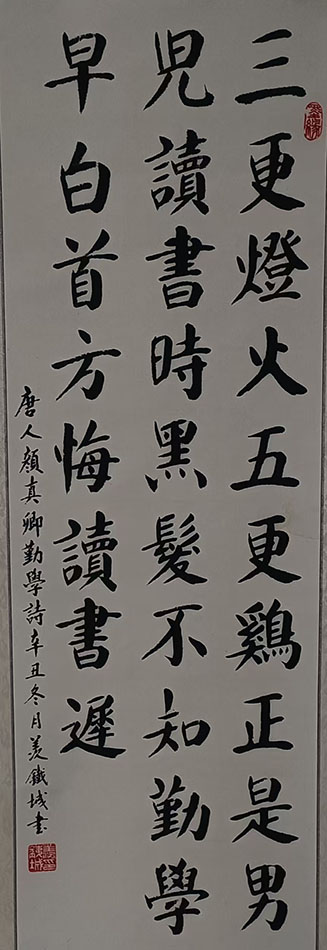 三更燈火五更鷄正是男
兒讀書時黑髮不知勤學
早白首方悔讀書遲
唐人顏真卿勤學詩辛丑冬月姜鐵城書